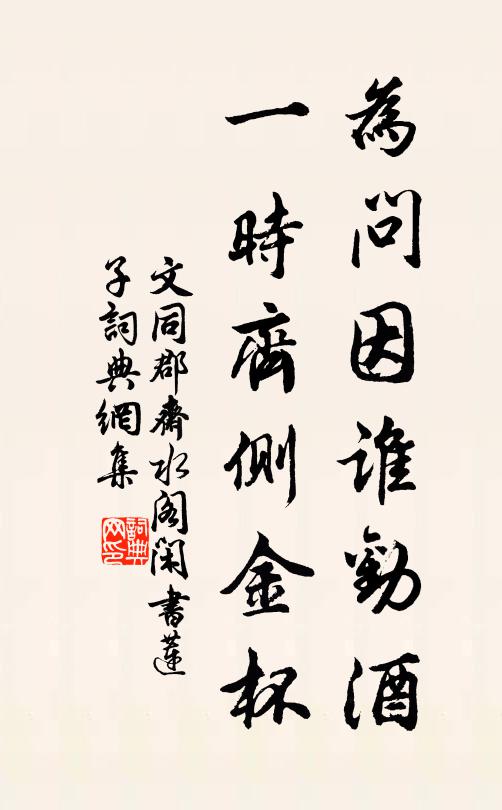 為問因誰勸酒
一時齊側金杯
文同郡齋水閣閑書蓮
子詞典網集
詞典網印